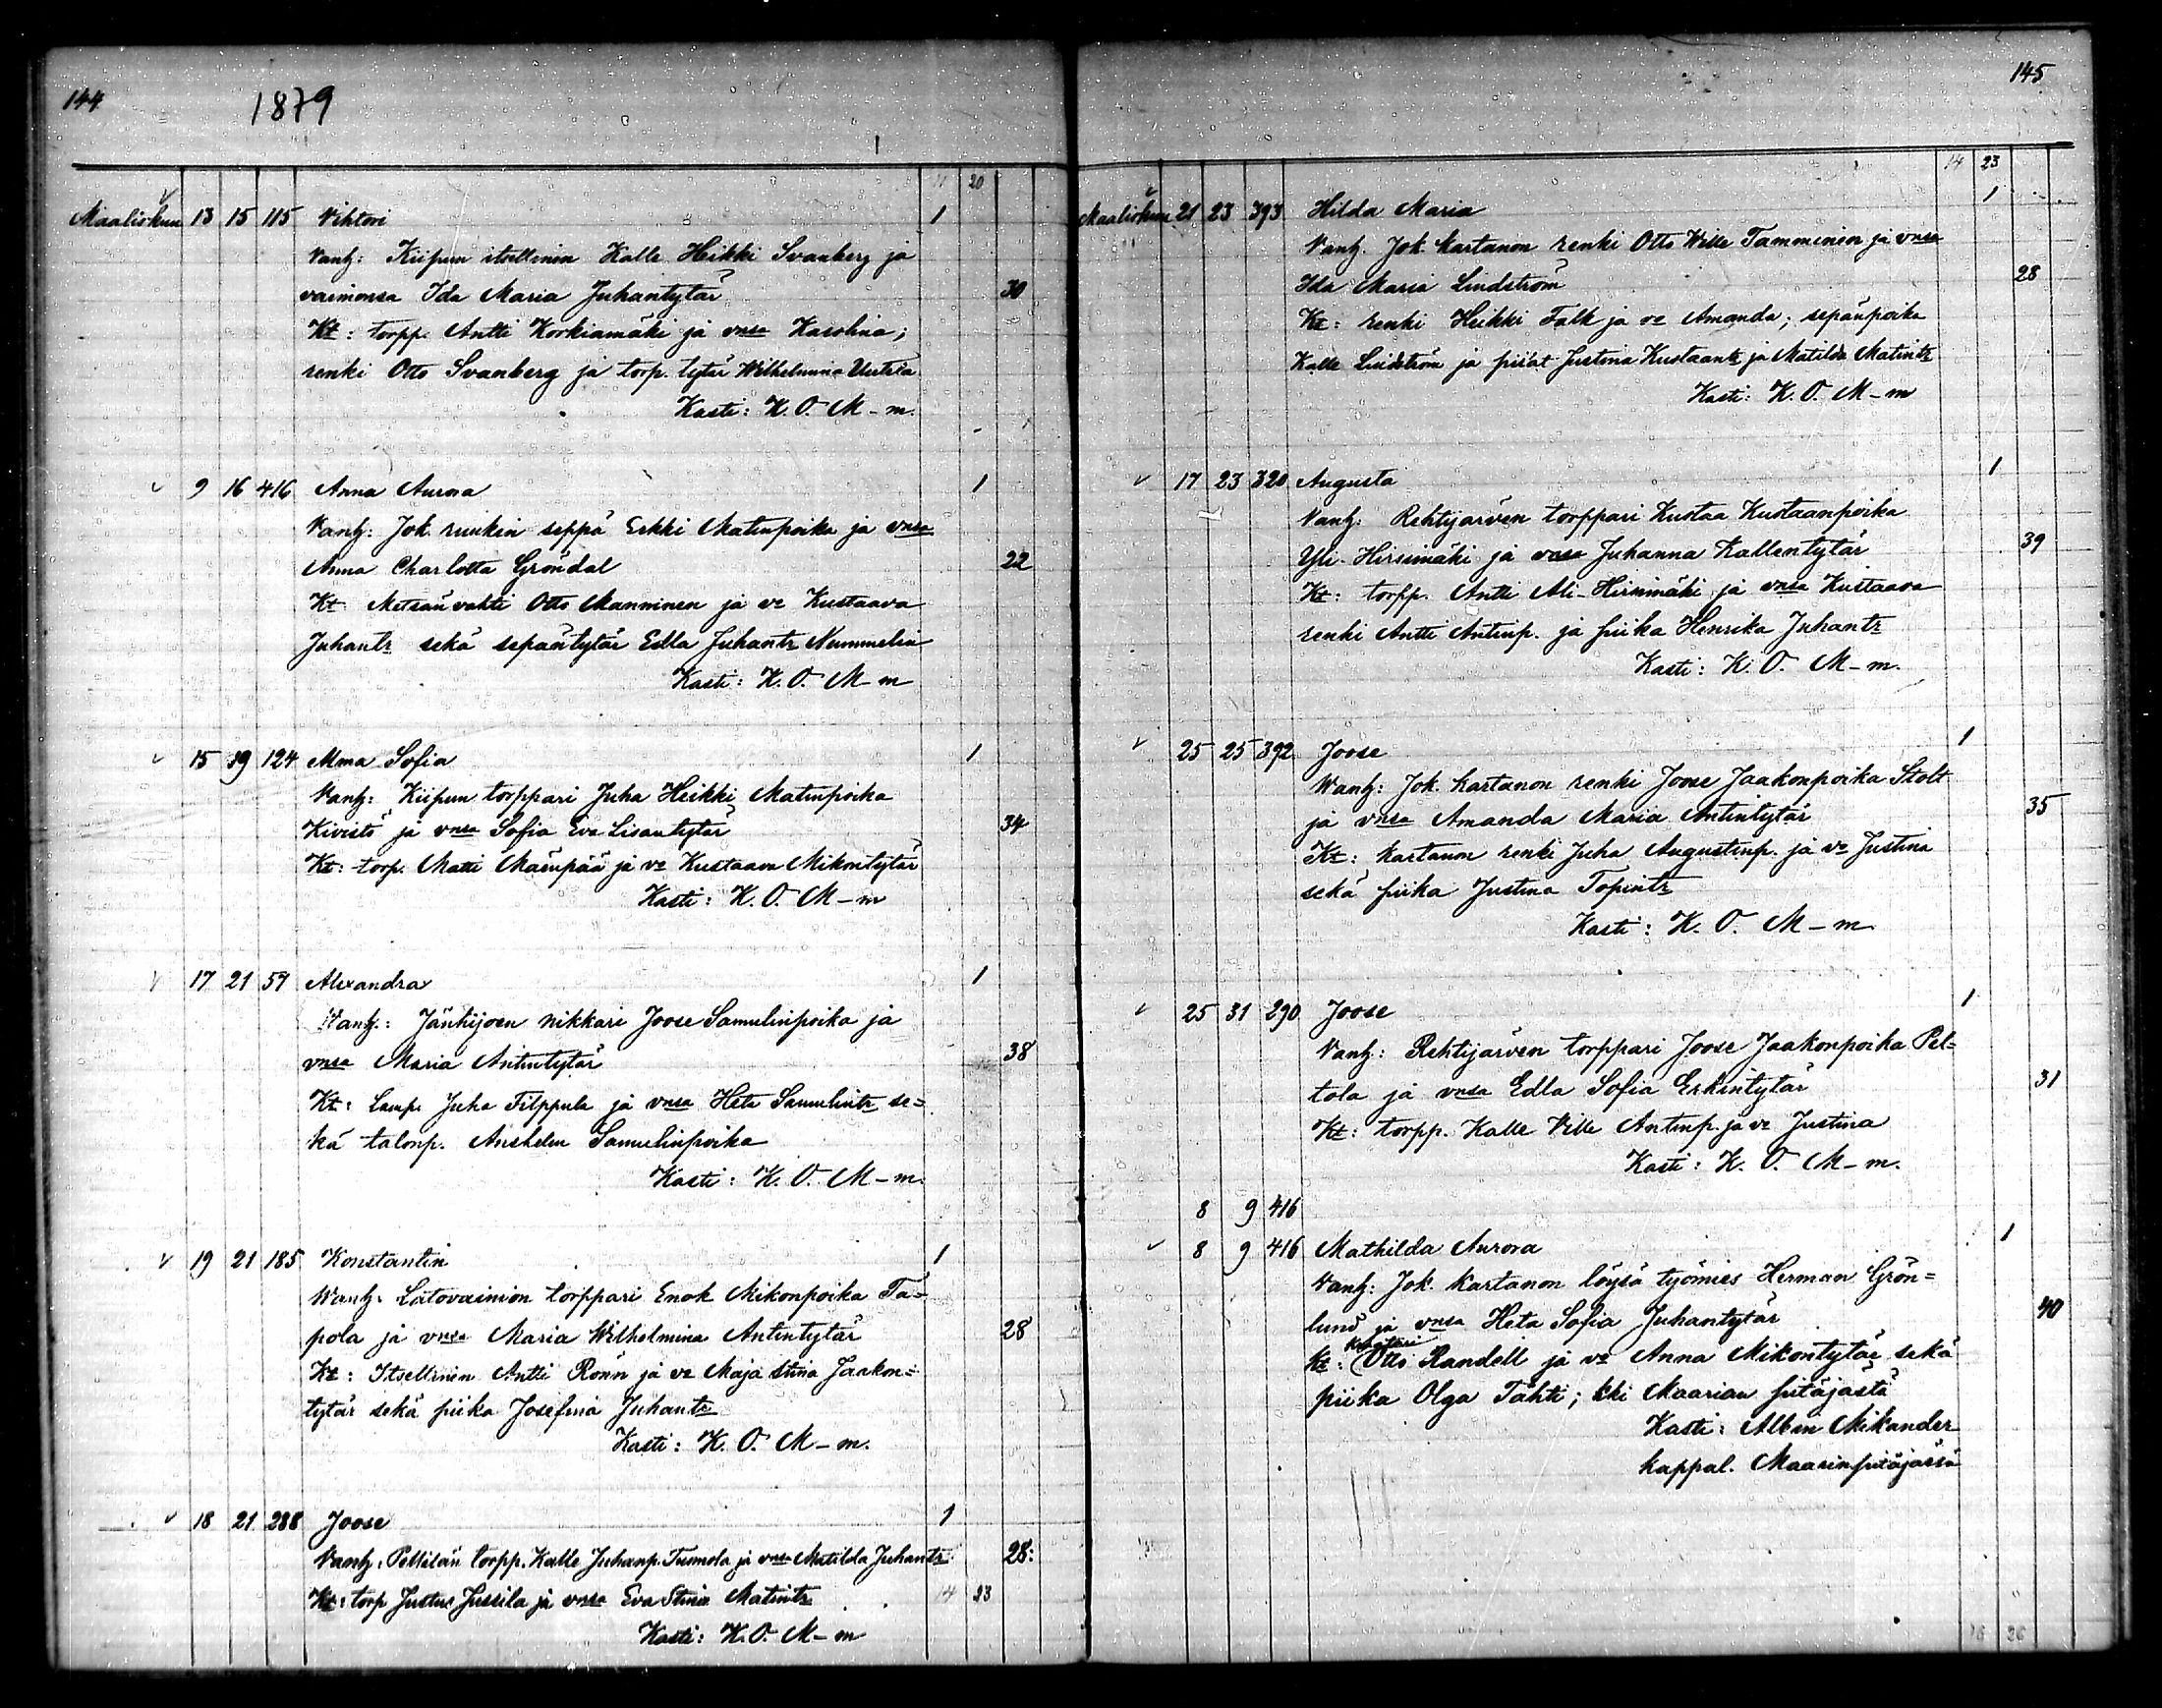 144
1879
11 20
Maaliskuu 13 15 115 Vihtori 1
Vanh: Kiipun itsellinen Kalle Heikki Svanberg ja
vaimonsa Ida Maria Juhantytär 30
Kt: torpp. Antti Korkiamäki ja vnsa Karolina;
renki Otto Svanberg ja torp. tytär Wilhelmina Uutela
Kasti: K. O. M-m.
9 16 416 Anna Aurora 1
Vanh: Jok. ruukin seppä Erkki Matinpoika ja vnsa
Anna Charlotta Gröndal 22
Kt Metsänvahti Otto Manninen ja vo Kustaava
Juhantr sekä sepäntytär Edla Juhantr Nummelin
Kasti: K. O. M-m
15 19 124 Alma Sofia 1
Vanh: Kiipun torppari Juha Heikki Matinpoika
Kivistö ja vnsa Sofia Eva Lisantytär 34
Kt: torp. Matti Mäenpää ja vo Kustaava Mikontytär
Kasti: K. O. M-m
17 21 57 Alexandra 1
Vanh.: Jänhijoen nikkari Joose Samulinpoika ja
vnsa Maria Antintytär 38
Kt: Lamp. Juha Filppula ja vnsa Heta Samulintr se=
kä talonp. Anshelm Samulinpoika
Kasti: K. O. M-m.
19 21 185 Konstantin 1
Wanh. Latovainion torppari Enok Mikonpoika Ta=
pola ja vnsa Maria Wilhelmina Antintytär 28
Kt: Itsellinen Antti Rönn ja vo Maja Stina Jaakon=
tytär sekä piika Josefina Juhantr
Kasti: K. O. M-m.
18 21 288 Joose 1
Vanh: Pellilän torpp. Kalle Juhanp. Tunnola ja vnsa Matilda Juhantr 28:
Kt: torp Justus Jussila ja vnsa Eva Stina Matintr 14 23
Kasti: K. O. M-m
145
14 23
Maaliskuu 21 23 393 Hilda Maria 1
Vanh. Jok. kartanon renki Otto Wille Tamminen ja vnsa
Ida Maria Lindström 28
Kt: renki Heikki Falk ja vo Amanda; sepänpoika
Kalle Lindström ja piiat Justina Kustaantr ja Matilda Matintr
Kasti: K. O. M-m
17 23 320 Augusta 1
Vanh: Rehtijärven torppari Kustaa Kustaanpoika
Yli-Hirsimäki ja vnsa Juhanna Kallentytär 39
Kt: torpp. Antti Ali-Hirsimäki ja vnsa Kustaava
renki Antti Antinp. ja piika Henrika Juhantr
Kasti: K. O. M-m.
25 25 392 Joose 1
Wanh: Jok. kartanon renki Joose Jaakonpoika Stolt
ja vnsa Amanda Maria Antintytär 35
Kt: kartanon renki Juha Augustinp. ja vo Justina
sekä piika Justina Topintr
Kasti: K. O. M-m
25 31 290 Joose 1
Vanh: Rehtijärven torppari Joose Jaakonpoika Pel=
tola ja vnsa Edla Sofia Erkintytär 31
Kt: torpp. Kalle Ville Antinp. ja vo Justina
Kasti: K. O. M-m.
8 9 416
8 9 416 Mathilda Aurora 1
Vanh: Jok. kartanon löysä työmies Herman Grön=
lund ja vnsa Heta Sofia Juhantytär 40
Kt: Otto Randell ja vo Anna Mikontytär sekä
piika Olga Tähti; kki Maarian pitäjästä
Kasti: Albin Mikander
kappal. Maarian pitäjässä
16 26